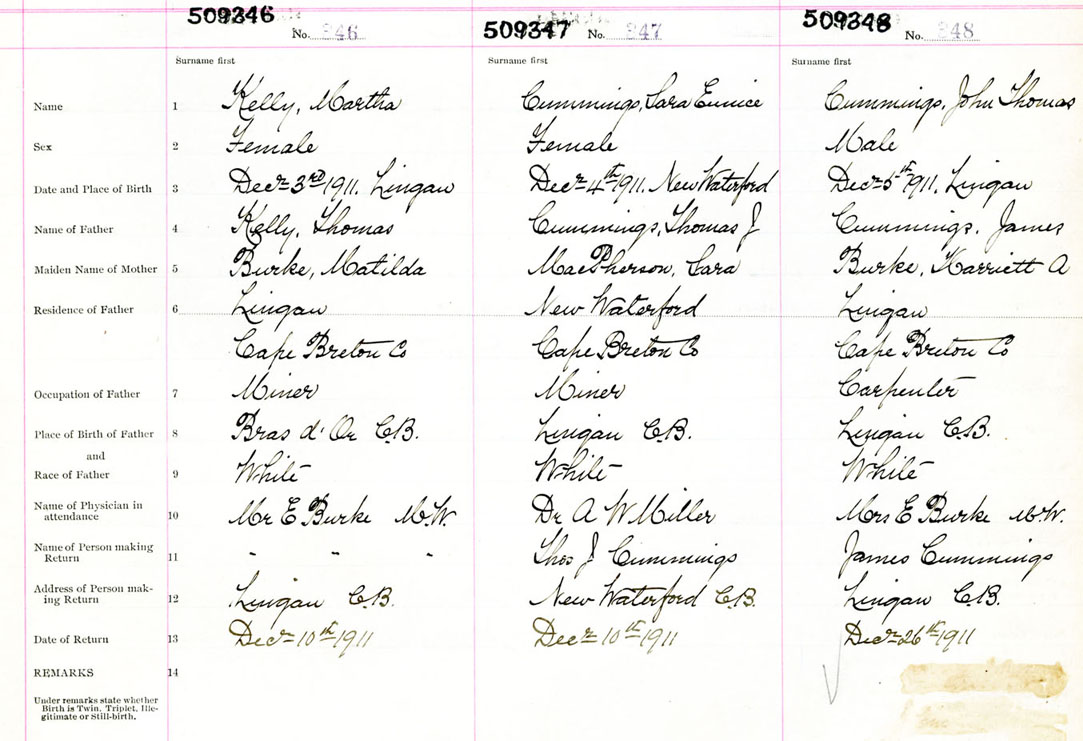 509346 509347 509348
No. 346 No. 347 No. 348
Surname first Surname first Surname first
Name 1 Kelly, Martha Cummings, Sara Eunice Cummings, John Thomas
Sex 2 Female Female Male
Date and Place of Birth 3 Decr 3rd 1911. Lingan Decr 4th 1911. New Waterford Decr 5th 1911. Lingan
Name of Father 4 Kelly, Thomas Cummings, Thomas J Cummings, James
Maiden Name of Mother 5 Burke, Matilda MacPherson, Sara Burke, Harriett A
Residence of Father 6 Lingan New Waterford Lingan
Cape Breton Co Cape Breton Co Cape Breton Co
Occupation of Father 7 Miner Miner Carpenter
Place of Birth of Father 8 Bras d' Or C.B. Lingan C.B. Lingan C.B.
and
Race of Father 9 White White White
Name of Physician in
attendance 10 Mr E Burke M.W. Dr A W Miller Mrs E Burke M.W.
Name of Person making
Return 11 " " " Thos J Cummings James Cummings
Address of Person mak-
ing Return 12 Lingan C.B. New Waterford C.B. Lingan C.B.
Date of Return 13 Decr 10th 1911 Decr 10th 1911 Decr 26th 1911
REMARKS 14
Under remarks state whether
Birth is Twin, Triplet, Ille-
gitimate or Still-birth.